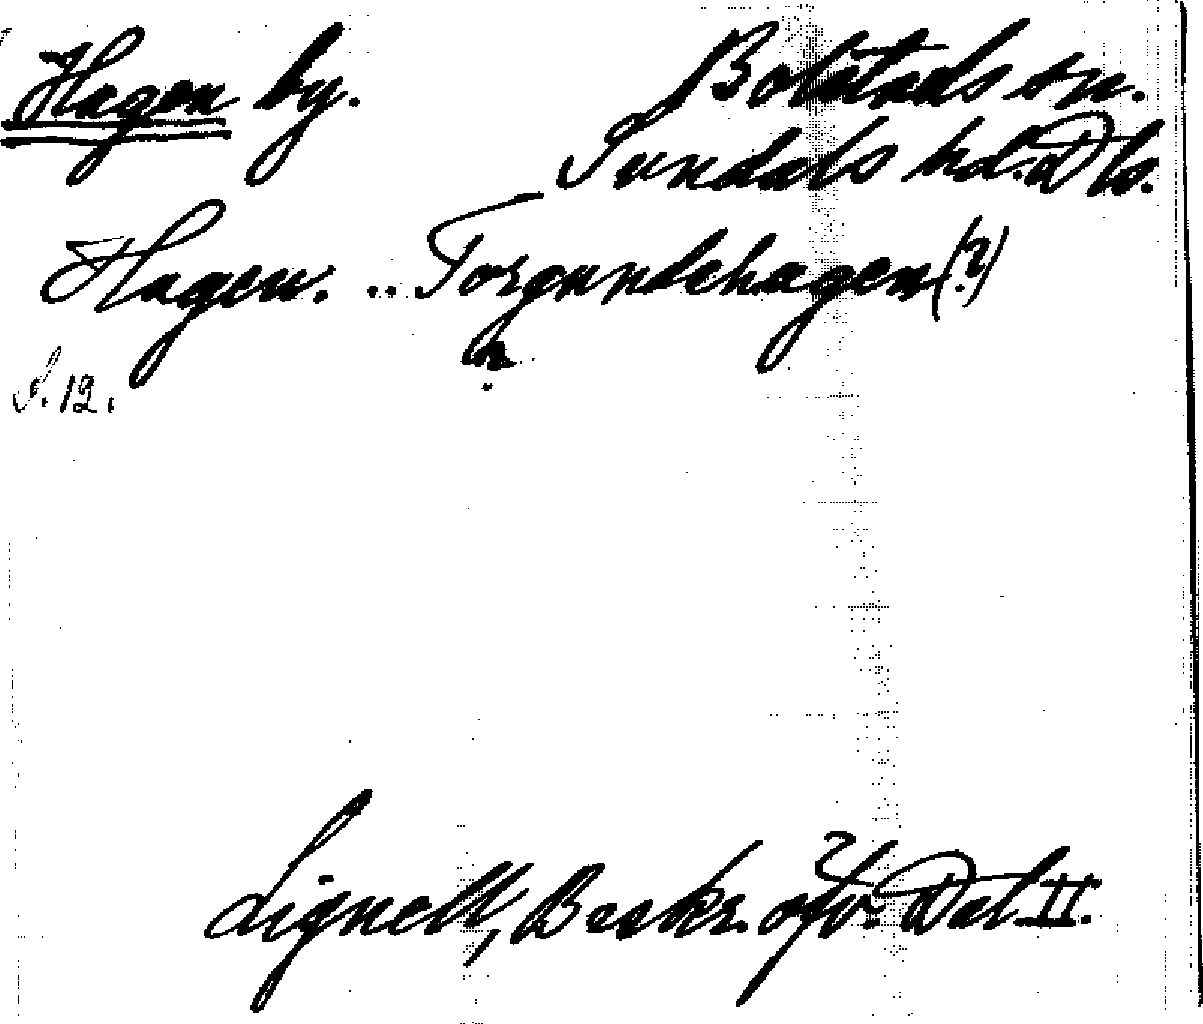 Hagen by. Bolstads sn.
Sundals hd. Dls.
Hagen. .. Torgundehagen (?)
S. 12.
Lignell, Beskr. öfv. Dal II.